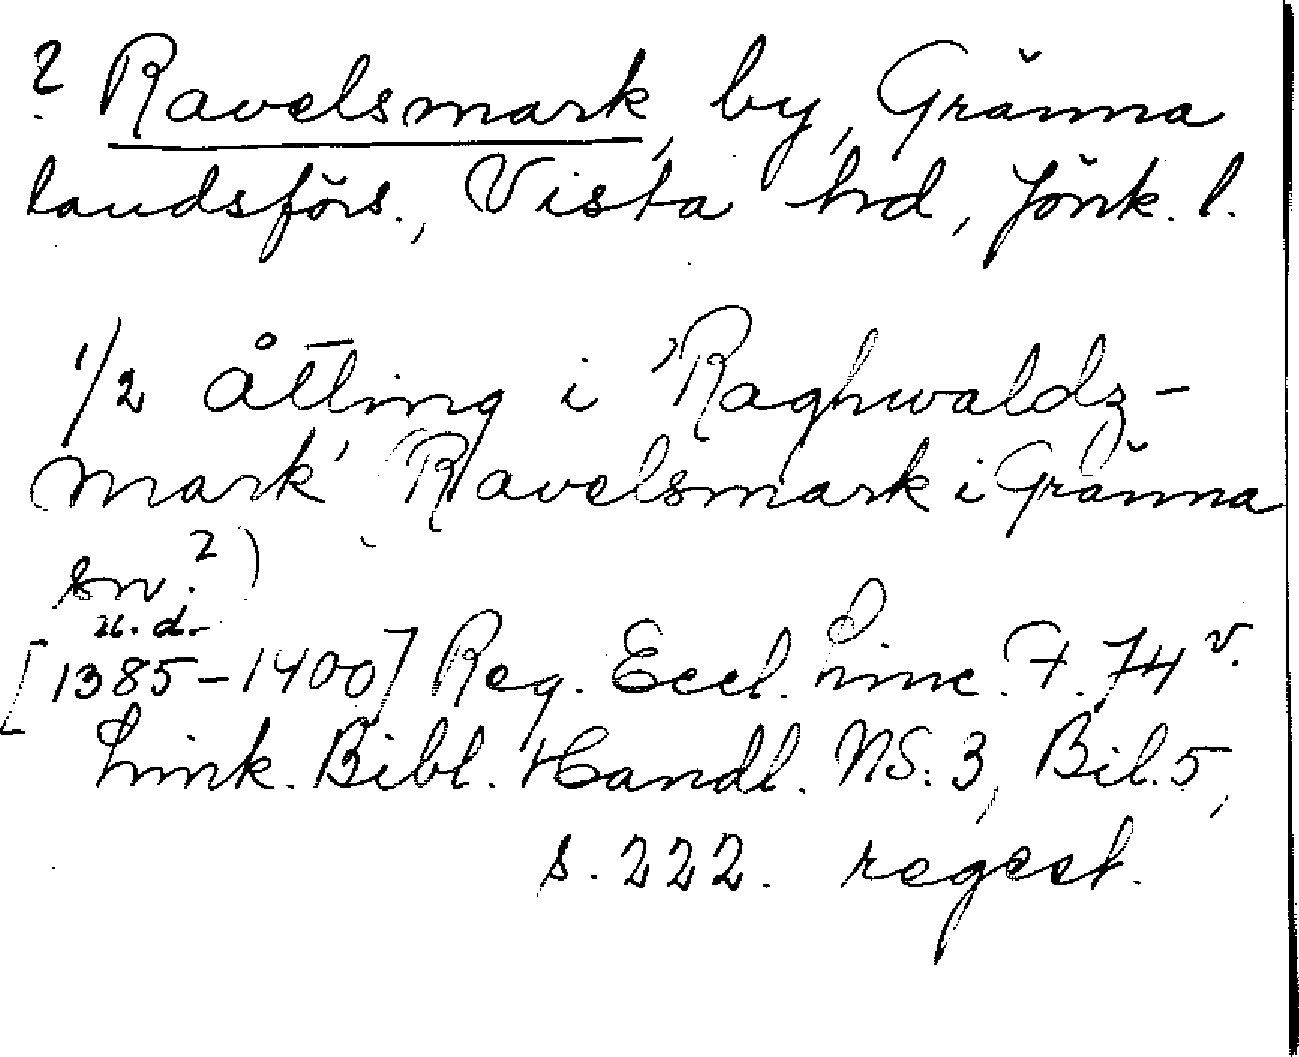 ? Ravelsmark, by, Gränna
landsförs., Vista hd, Jönk. l.
1/2 åtting i 'Raghwaldz-
mark' (Ravelsmark i Gränna
sn.?)
u. d.
[1385-1400] Reg. Eccl. Linc. F. 74 v.
Link. Bibl. Handl. NS. 3, Bil. 5,
s. 222. regest.